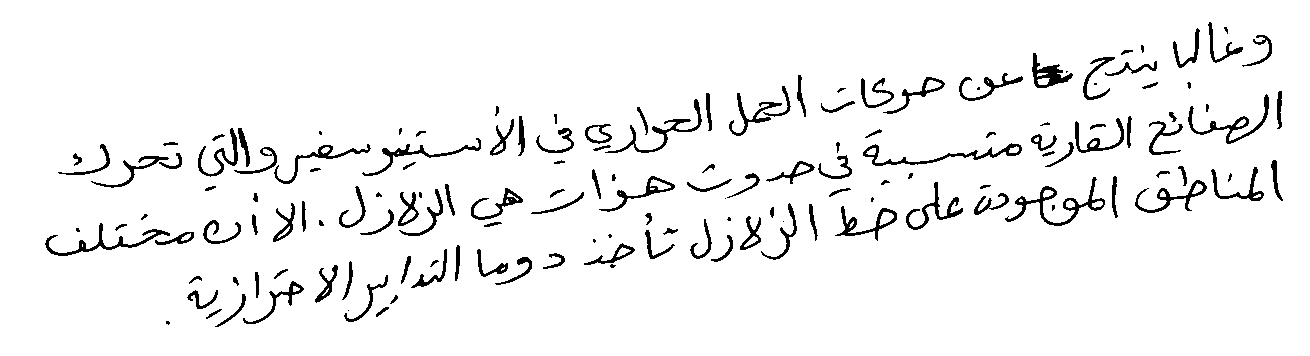 وغالبا ينتج عن حركات الحمل الحراري في الأستينوسفير والتي تحرك
الصفائح القارية متسببة في حدوث هزات هي الزلازل. الا أن مختلف
المناطق الموجودة على خط الزلازل تأخذ دوما التدابير الاحترازية.